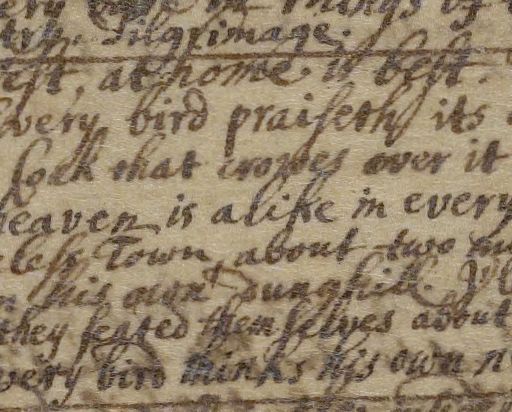 ery of things of
Pilgrimage.
est, at home is best.
very bird praiseth its
Cock that crowes over it
heaven is alike in every
less Town, about two
his own dunghill.
they seated themselves about
very bird thinks his own n